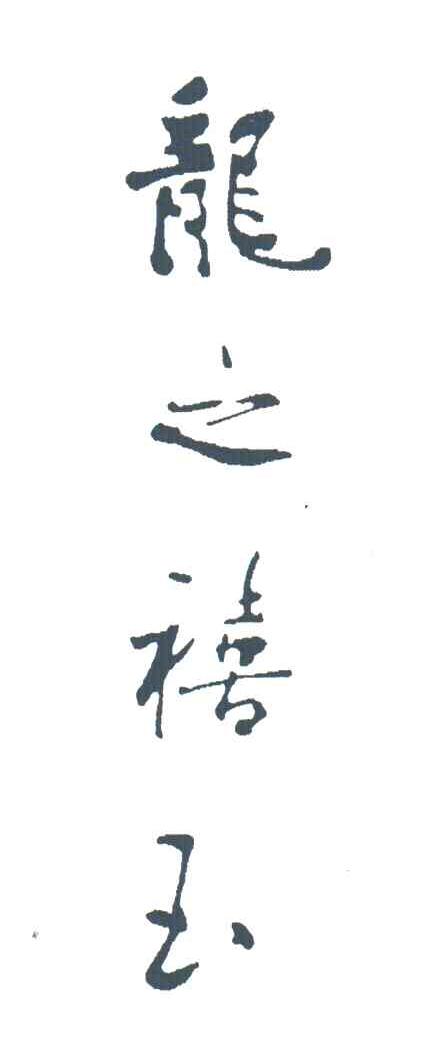 龍之禧玉